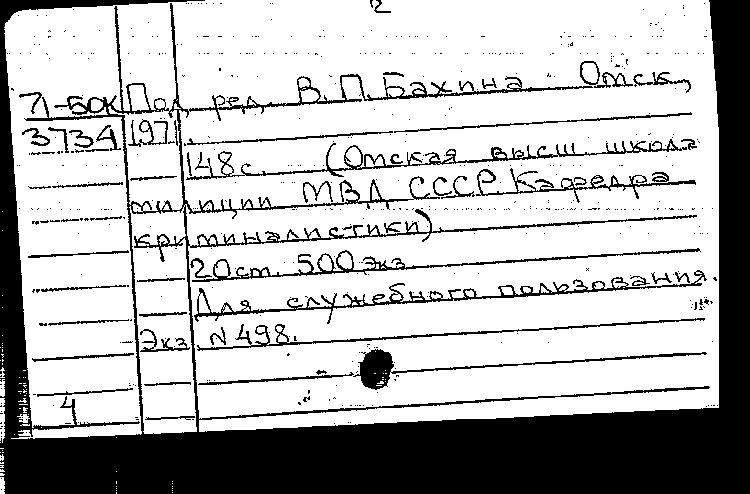 2
71-БОК Под ред. В.П.Бахина Омск,
3734 1971.
148с. (Омская высш школа
милиции МВД СССР. Кафедра
криминалистики).
20см. 500 экз
Для служебного пользования.
Экз N 498.
4